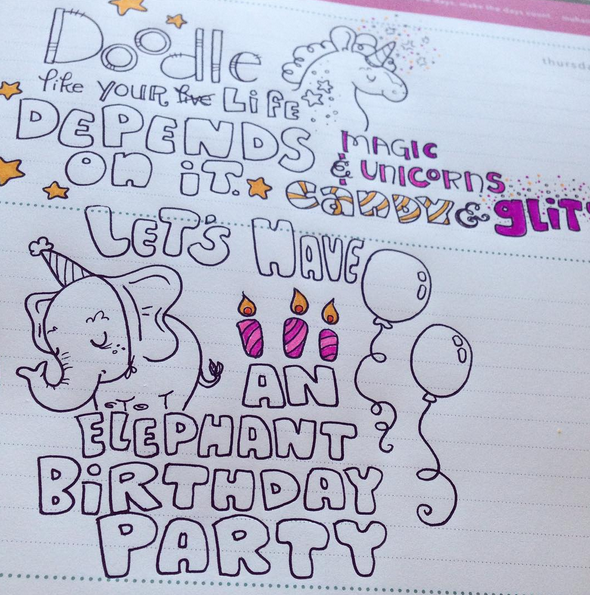 Doodle
like YOUR live LiFE
DEPENDS
on iT.
MAGIC
& UNICORNS
CANDY & GLiT
LET'S HAVE
AN
ELEPHANT
BiRTHDAY
PARTY
days, make the days count.
thursda